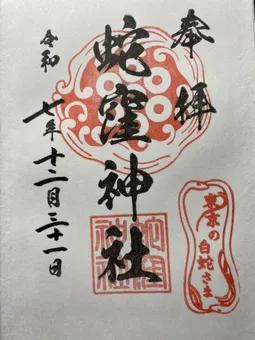 奉拝
蛇窪神社
令和
七年十二月三十一日
東京の
白蛇さま
蛇窪
神社